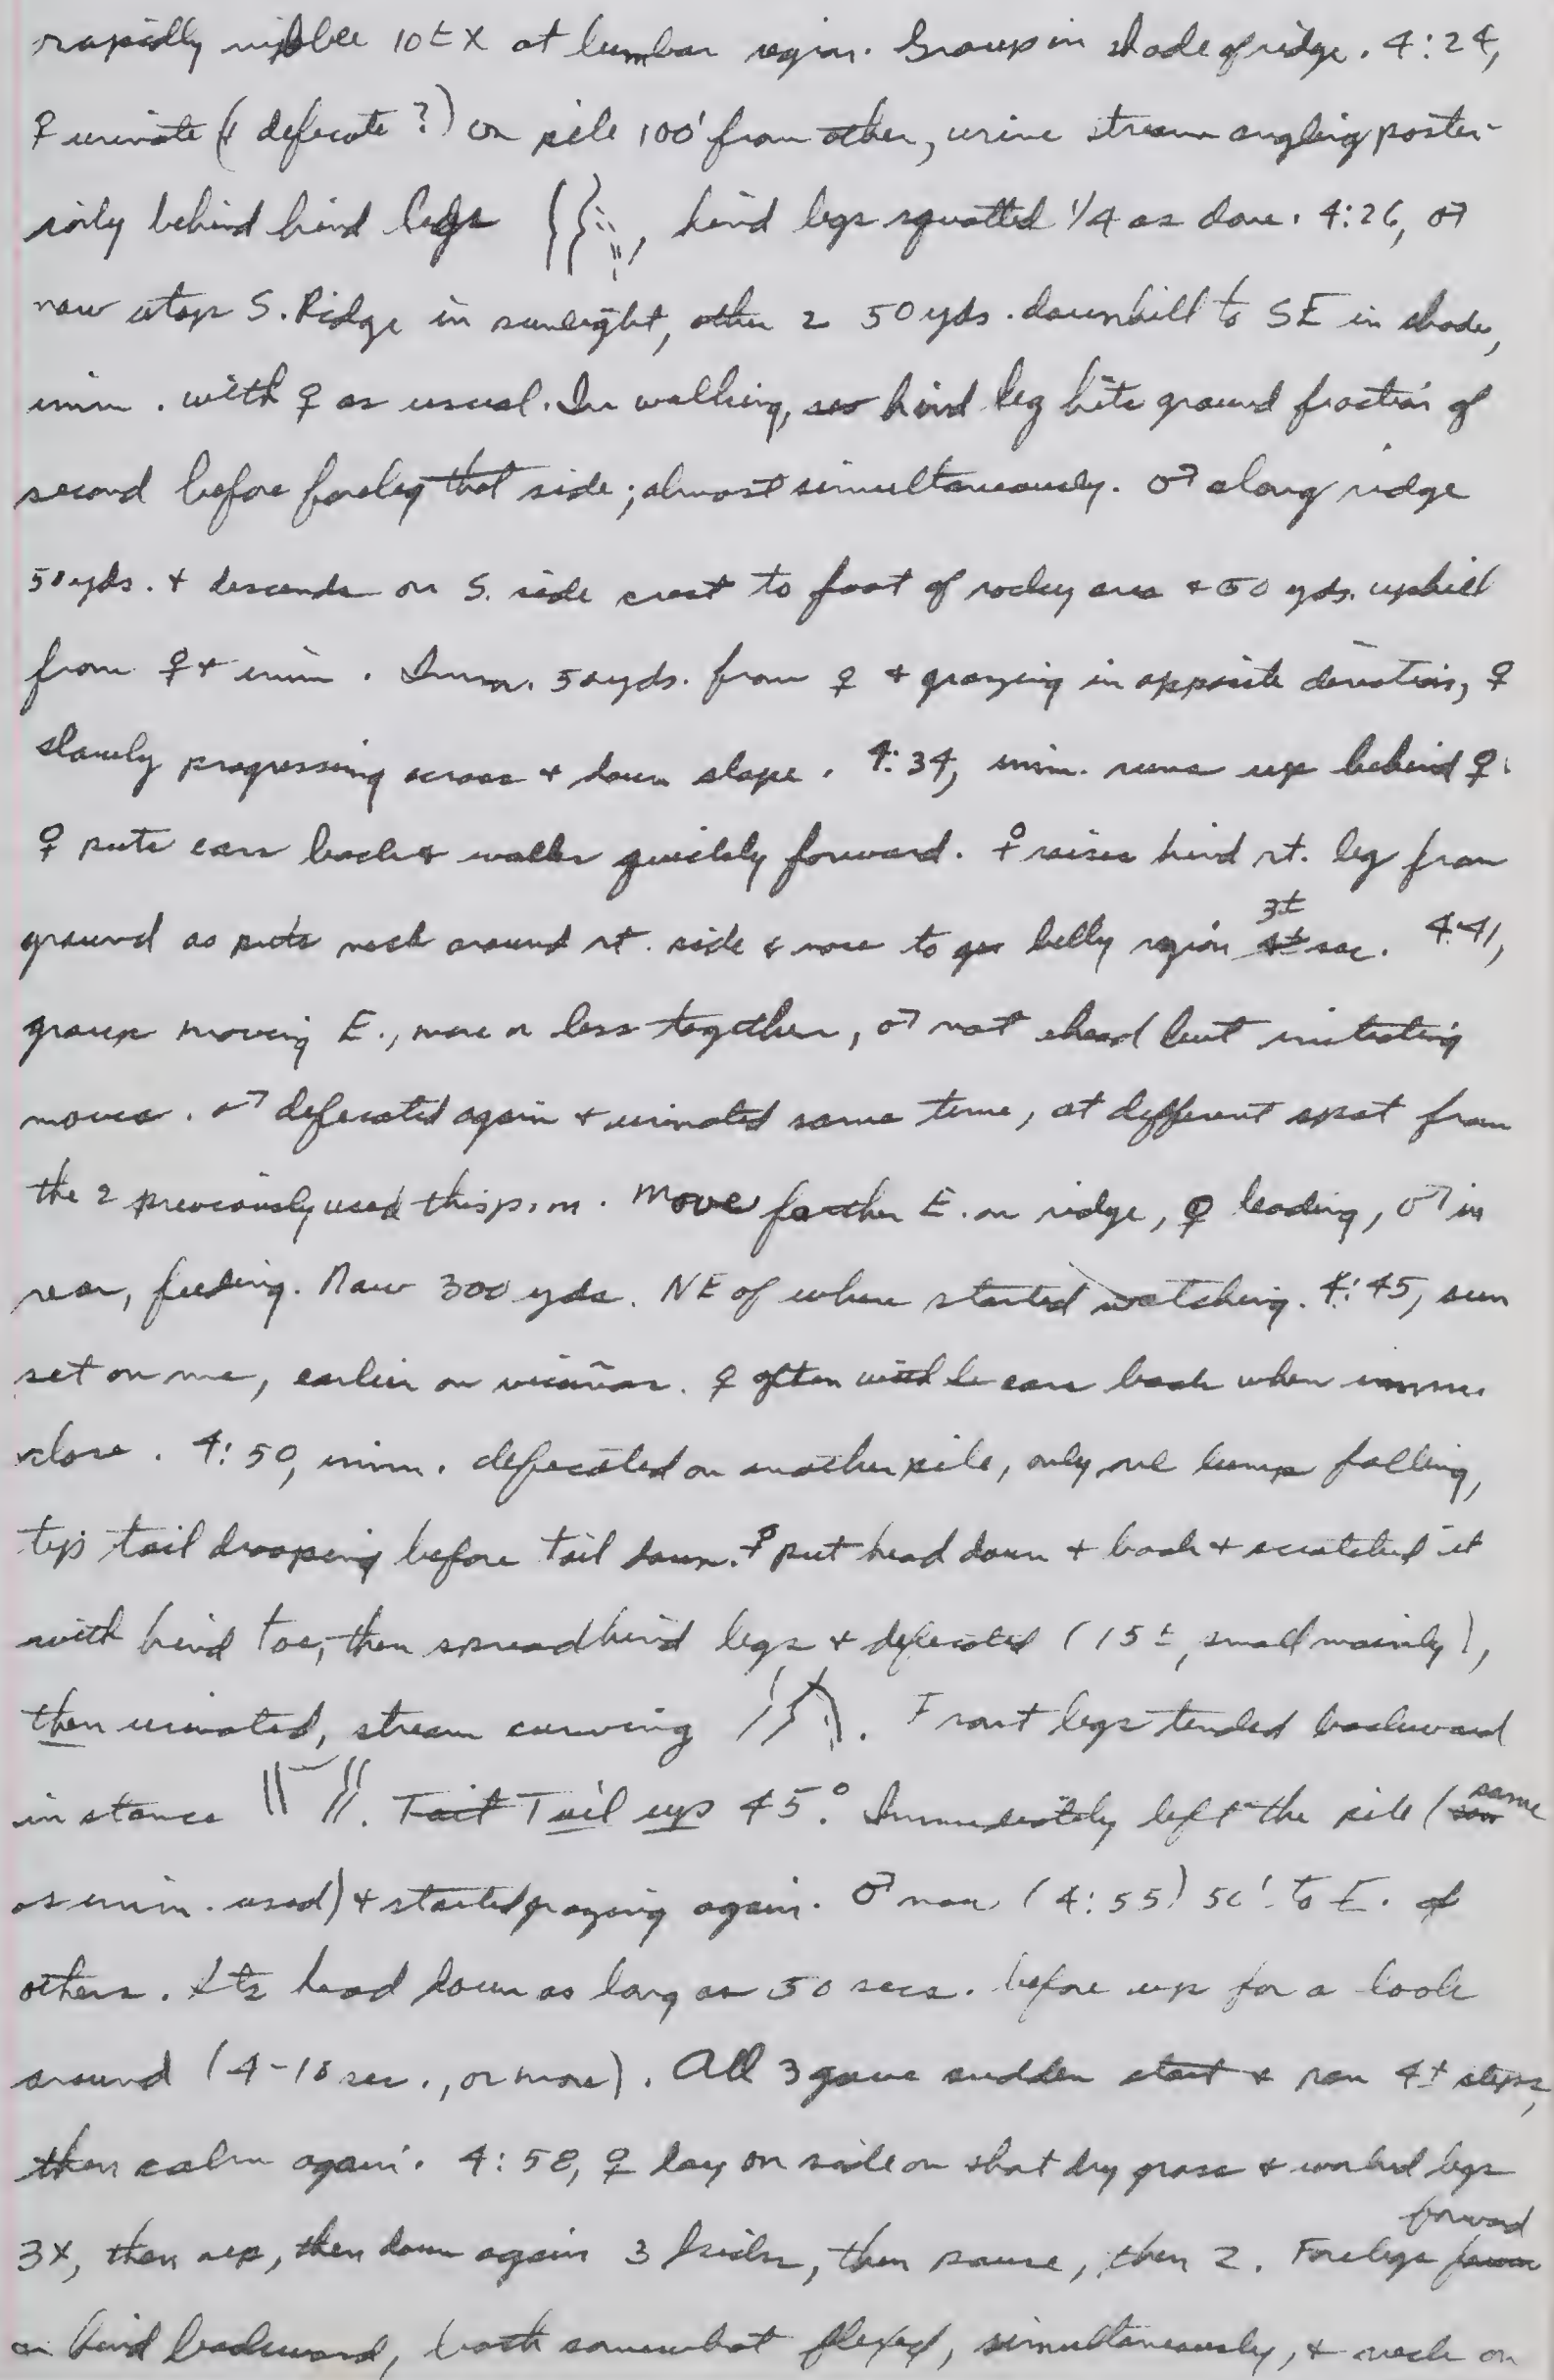 rapidly nibble 10± X at lumbar region. Group in shade of ridge. 4:24,
♀ urinate (& defecate?) on pile 100' from other, urine stream angling poster-
iorly behind hind legs , hind legs squatted 1/4 as down. 4:26, ♂
now atop S. Ridge in sunlight, other 2 50 yds. downhill to SE in shade,
imm. with ♀ as usual. In walking, hind leg hits ground fraction of
second before foreleg that side; almost simultaneously. ♂ along ridge
50 yds. + descends on S. side crest to foot of rocky area + 50 yds. uphill
from ♀ + imm. Imm. 50 yds. from ♀ + grazing in opposite direction, ♀
slowly progressing across + down slope. 4:34, imm. runs up behind ♀.
♀ puts ears back + walks quickly forward. ♀ raises hind rt. leg from
ground as puts neck around rt. side & nose to belly region 3± sec. 4:41,
group moving E., more or less together, ♂ not ahead but initiating
moves. ♂ defecated again + urinated same time, at different spot from
the 2 previously used this p.m. Move farther E. on ridge, ♀ leading, ♂ in
rear, feeding. Now 300 yds. NE of where started watching. 4:45, sun
set on me, earlier on vicuñas. ♀ often ears back when imm.
close. 4:50, imm. defecated on another pile, only one lump falling,
tip tail drooping before tail down. ♀ put head down + back + scratched it
with hind toe, then spread hind legs + defecated (15±, small mainly),
then urinated, stream curving . Front legs tended backward
in stance . Tail Tail up 45°. Immediately left the pile (same
as imm. used) + started grazing again. ♂ now (4:55) 50' to E. of
others. Its head down as long as 50 secs. before up for a look
around (4-10 sec., or more). All 3 gave sudden start & ran 4± steps,
then calm again. 4:58, ♀ lay on side on short dry grass & worked legs
3X, then up, then down again 3 kicks, then pause, then 2. Forelegs forward
hind backward, both somewhat flexed, simultaneously, + neck on